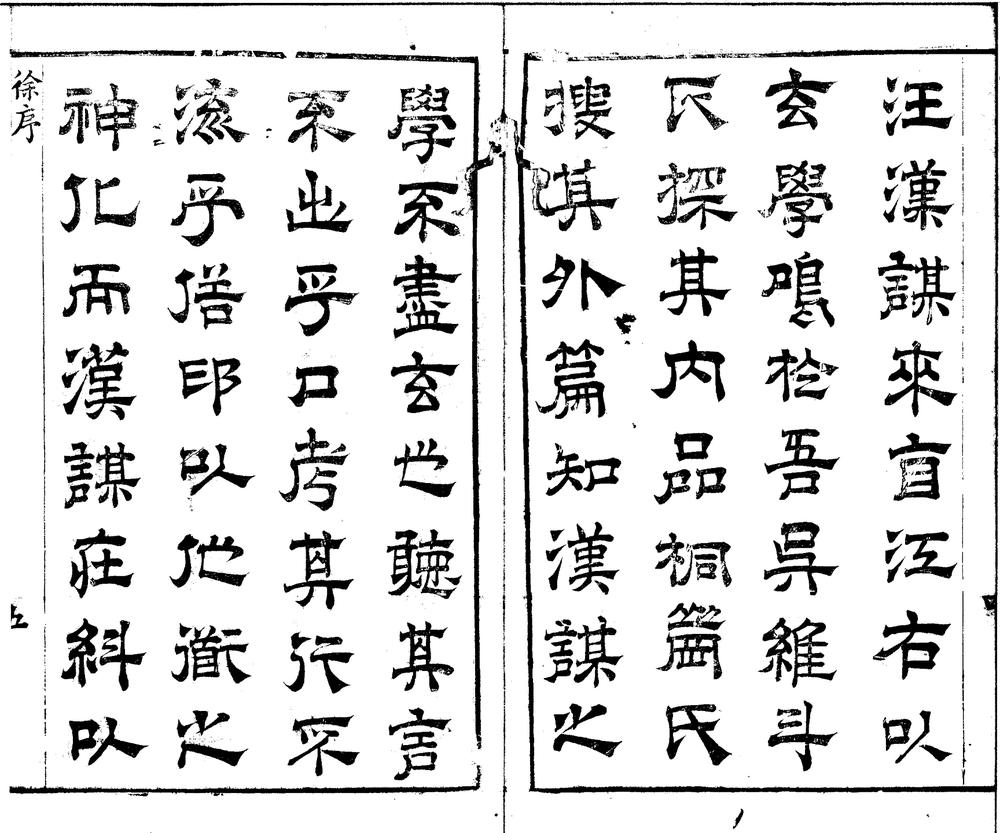 汪漢謀來自江右以
玄學鳴於吾吳維斗
氏探其内品桐氏
搜其外篇知漢謀之
學不盡玄也聽其言
不出乎口考其行不
流乎俗印以他衜之
神化而漢謀在糾以
徐序